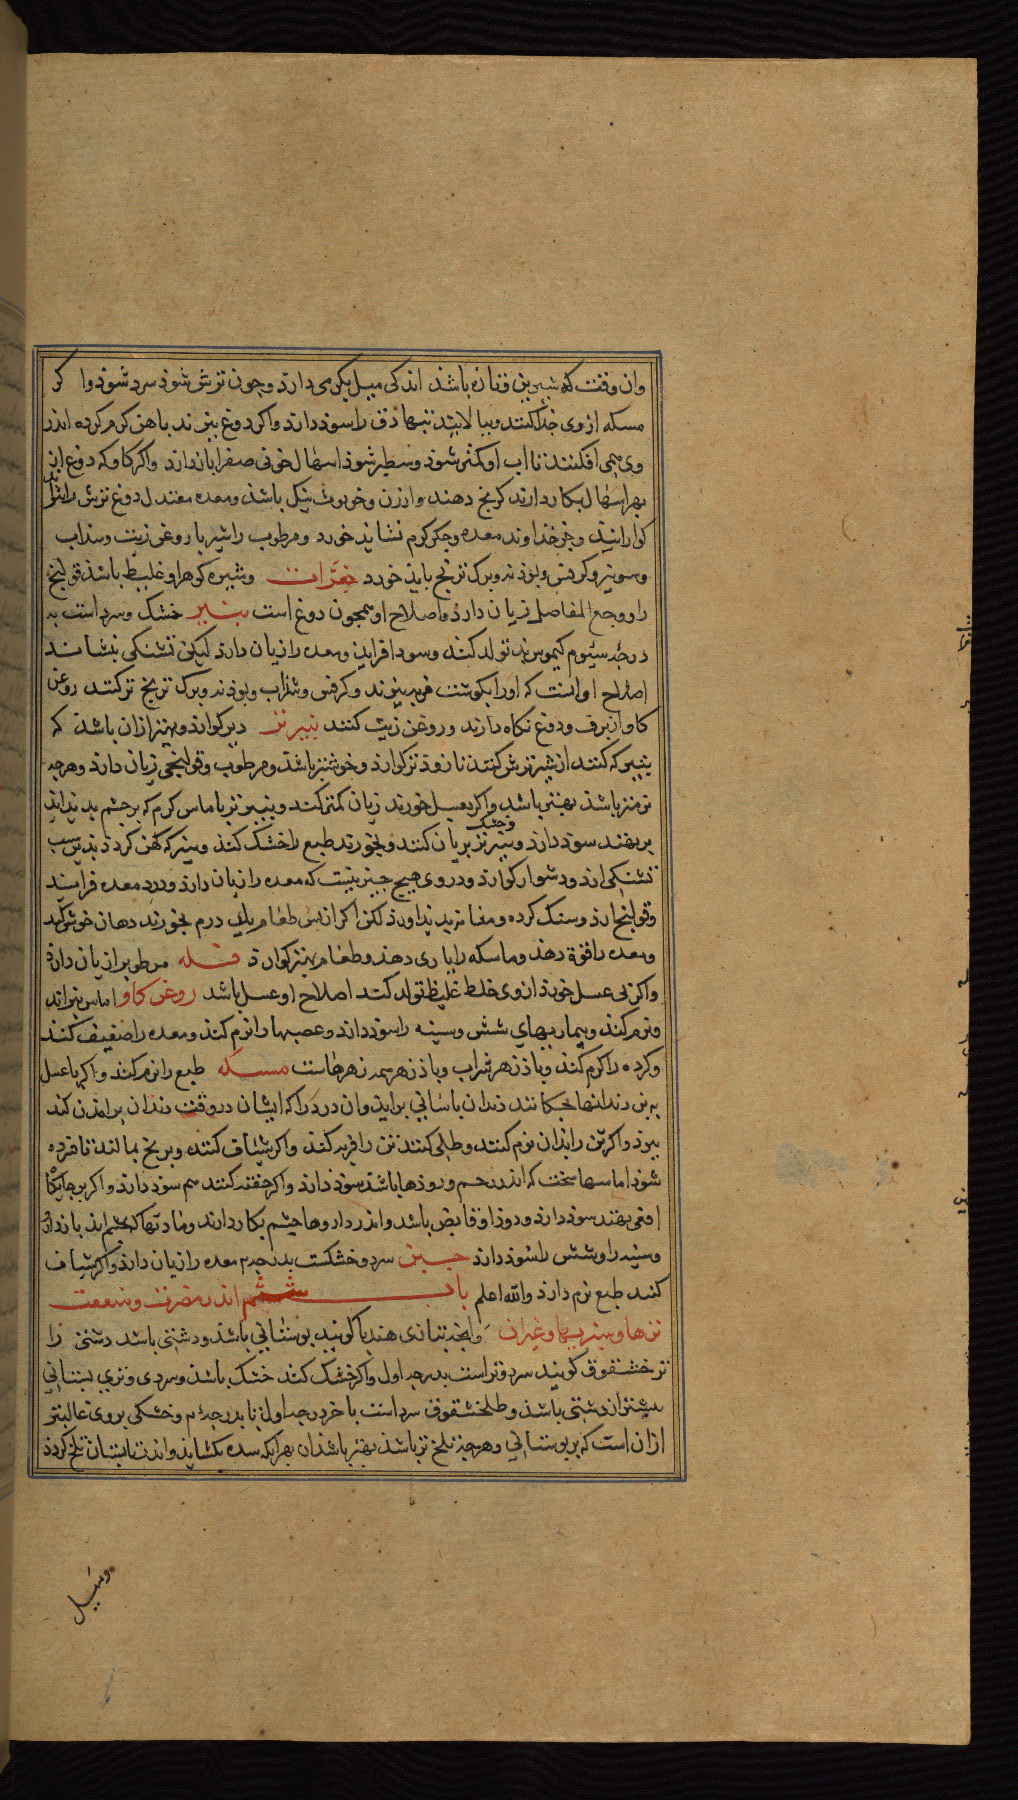 وان وقت که شیرین و تازه باشذ اندکی میل بکرمی دارد و چون ترش شوذ سرد شوذ و اکر
مسکه ازوی جذا کنند و بیالایند تبهاء دق را سوذ دارد و اکر دوغ بپزند باهن کرم کرده اندر
وی همی افکنند تا اب او کمتر شوذ و سطبر شوذ اسهال خونی صفرا باز دارد و اکر کاو که دوغ از
بهر اسهال بکار دارند کرنج دهند و ارزن و خرنوب نیک باشذ و معده معتدل دوغ ترش را
کوارانیذ و جز خذاوند معده و جکر کرم نشاید خورد و مرطوب را شیر با روغن زیت و سذاب
و سونیز و کرفس و بوذنه و برک ترنج باید خورد جغرات و شیره کوهر او غلیظ باشذ قولنج
را و وجع المفاصل زیان دارد و اصلاح او همجون دوغ است پنیر خشک و سرد است به
درجه سیوم کیموس بد تولد کند و سودا فزاید و معده را زیان دارد لیکن تشنکی بنشاند
اصلاح او انست که او را بکوشت فربه بپزند و کرفس و سذاب و بوذنه و برک ترنج تر کنند روغن
کاو از برف و دوغ نکاه دارند و روغن زیت کنند پنیر تر دیر کوارد و بهتر ازان باشذ که
پنیر که کنند از شیر ترش کنند تا زودتر کوارد و خوشتر باشذ و مرطوب و قولنجی زیان دارد و هرجه
نرمتر باشذ بهتر باشد و اکر بعسل خورند زیان کمتر کند و پنیر تر با ماس کرم که بر جشم پدید اید
بر نهند سوذ دارد و پنیر تر و خشک بریان کنند و بخورند طبع را خشک کند و پنیر که کهن کردد بدین سبب
تشنکی ارد و دشوار کوارد و در وی هیچ چیز نیست که معده را زیان دارد و درد معده فزایند
و قولنج ارد و سنک کرده و مثانه پدید اورد لکن اکر از پس طعام یک درم بخورند دهان خوش کند
و معده را قوة دهد و ماسکه را یاری دهد و طعام بهتر کوارد فله مرطوب را زیان دارد
و اکر بی عسل خورد ازوی خلط غلیظ تولد کند اصلاح او عسل باشد روغن کاو اماس بنراند
و نرم کند و بیماریهای شش و سینه را سوذ دارد و عصبها را نرم کند و معده را ضعیف کند
و کرده را کرم کند و باذ زهر شراب و باذ زهر همه زهرهاست مسکه طبع را نرم کند و اکر با عسل
به بن دندانها بجکانند دندان باسانی براید و ان درد را که ایشان در وقت دندان برامدن کند
ببرد و اکر تن را بذان نرم کنند و طلی کنند تن را فربه کند و اکر شیاف کنند و بر نخ بمالند تا فرده
شوذ اماسها سخت که اندر رحم و روذها باشذ سوذ دارد و اکر حقنه کنند هم سوذ دارد و اکر بر جایکاه
افعی نهند سوذ دارد و دود او قابض باشد و اندر داروها جشم بکار دارند و مادتها که بجشم اید باز دارد
و سینه را و شش را سوذ دارد جبن سرد و خشکست بدرجه م معده را زیان دارد و اکر شیاف
کنند طبع نرم دارد والله اعلم باب ششم اندر مضرت و منفعت
ترها و سبزیها و غیران و انجه بتازی هندبا کویند بوستانی باشذ و دشتی باشد دشتی را
ترخشقوق کویند سرد و تر است بدرجه اول و اکر خشک کند خشک باشذ و سردی و تری بستانی
بیشتر از دشتی باشذ و طلخشقوق سرد است باخر درجه اول تا بدرجه م و خشکی بروی غالبتر
ازان است که بر بوستانی و هرجه تلخ تر باشذ بهتر باشذ ان بهر انکه سده بکشاید و اندر تابستان تلخ کردد
وسبیل